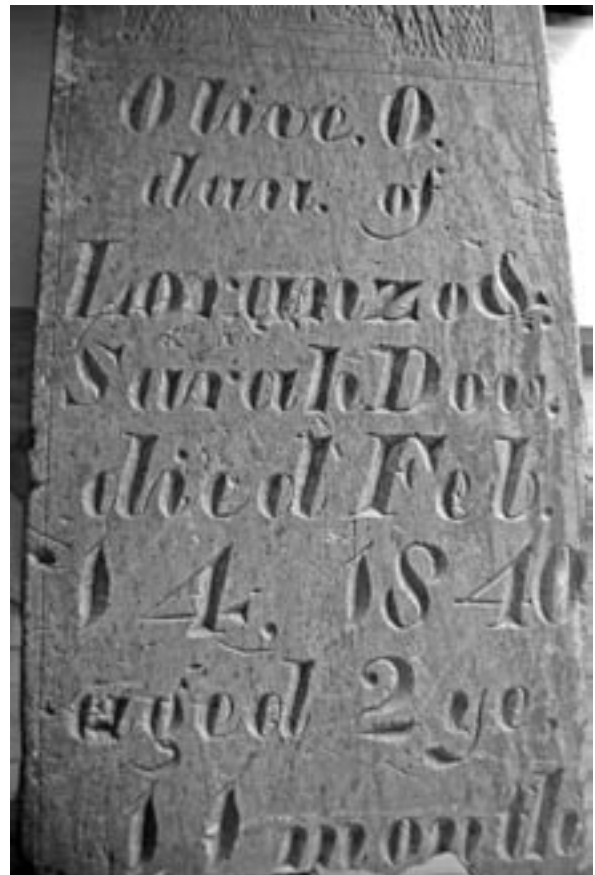 Olive. O.
dau. of
Loranzo &
Sarah Dow.
died Feb.
14, 1840
aged 2 ye.
11 month